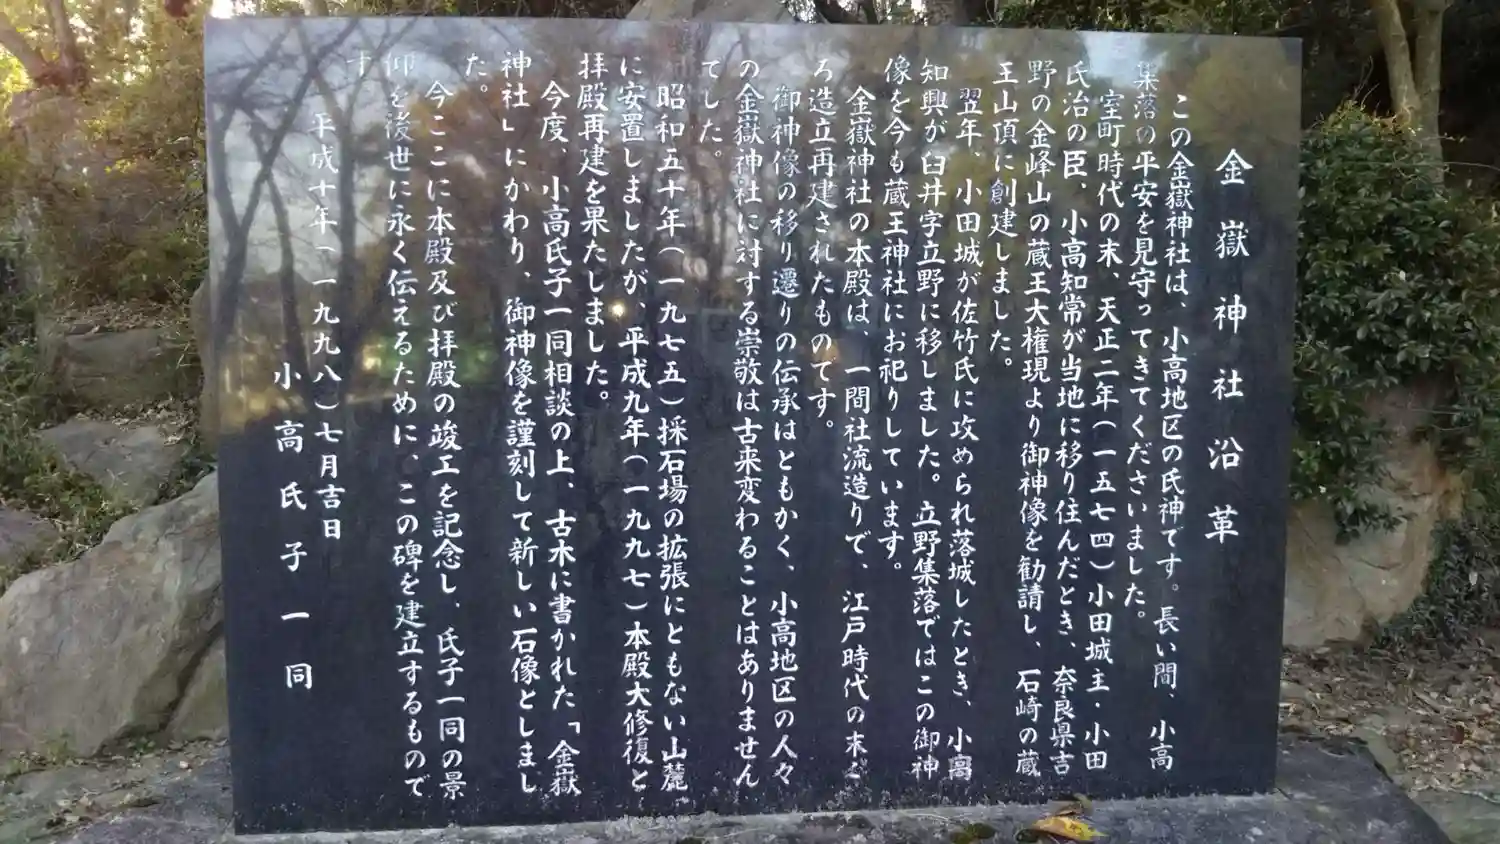 金嶽神社沿革
この金嶽神社は、小高地区の氏神です。長い間、小高
集落の平安を見守ってきてくださいました。
室町時代の末、天正二年(一五七四)小田城主・小田
氏治の臣、小高知常が当地に移り住んだとき、奈良県吉
野の金峰山の蔵王大権現より御神像を勧請し、石崎の蔵
王山頂に創建しました。
翌年、小田城が佐竹氏に攻められ落城したとき、小高
知興が臼井字立野に移しました。立野集落ではこの御神
像を今も蔵王神社にお祀りしています。
金嶽神社の本殿は、一間社流造りで、江戸時代の末ご
ろ造立再建されたものです。
御神像の移り遷りの伝承はともかく、小高地区の人々
の金嶽神社に対する崇敬は古来変わることはありません
でした。
昭和五十年(一九七五)採石場の拡張にともない山麓
に安置しましたが、平成九年(一九九七)本殿大修復と
拝殿再建を果たしました。
今度、小高氏子一同相談の上、古木に書かれた「金嶽
神社」にかわり、御神像を謹刻して新しい石像としまし
た。
今ここに本殿及び拝殿の竣工を記念し、氏子一同の景
仰を後世に永く伝えるために、この碑を建立するもので
す
平成十年(一九九八)七月吉日
小高氏子一同